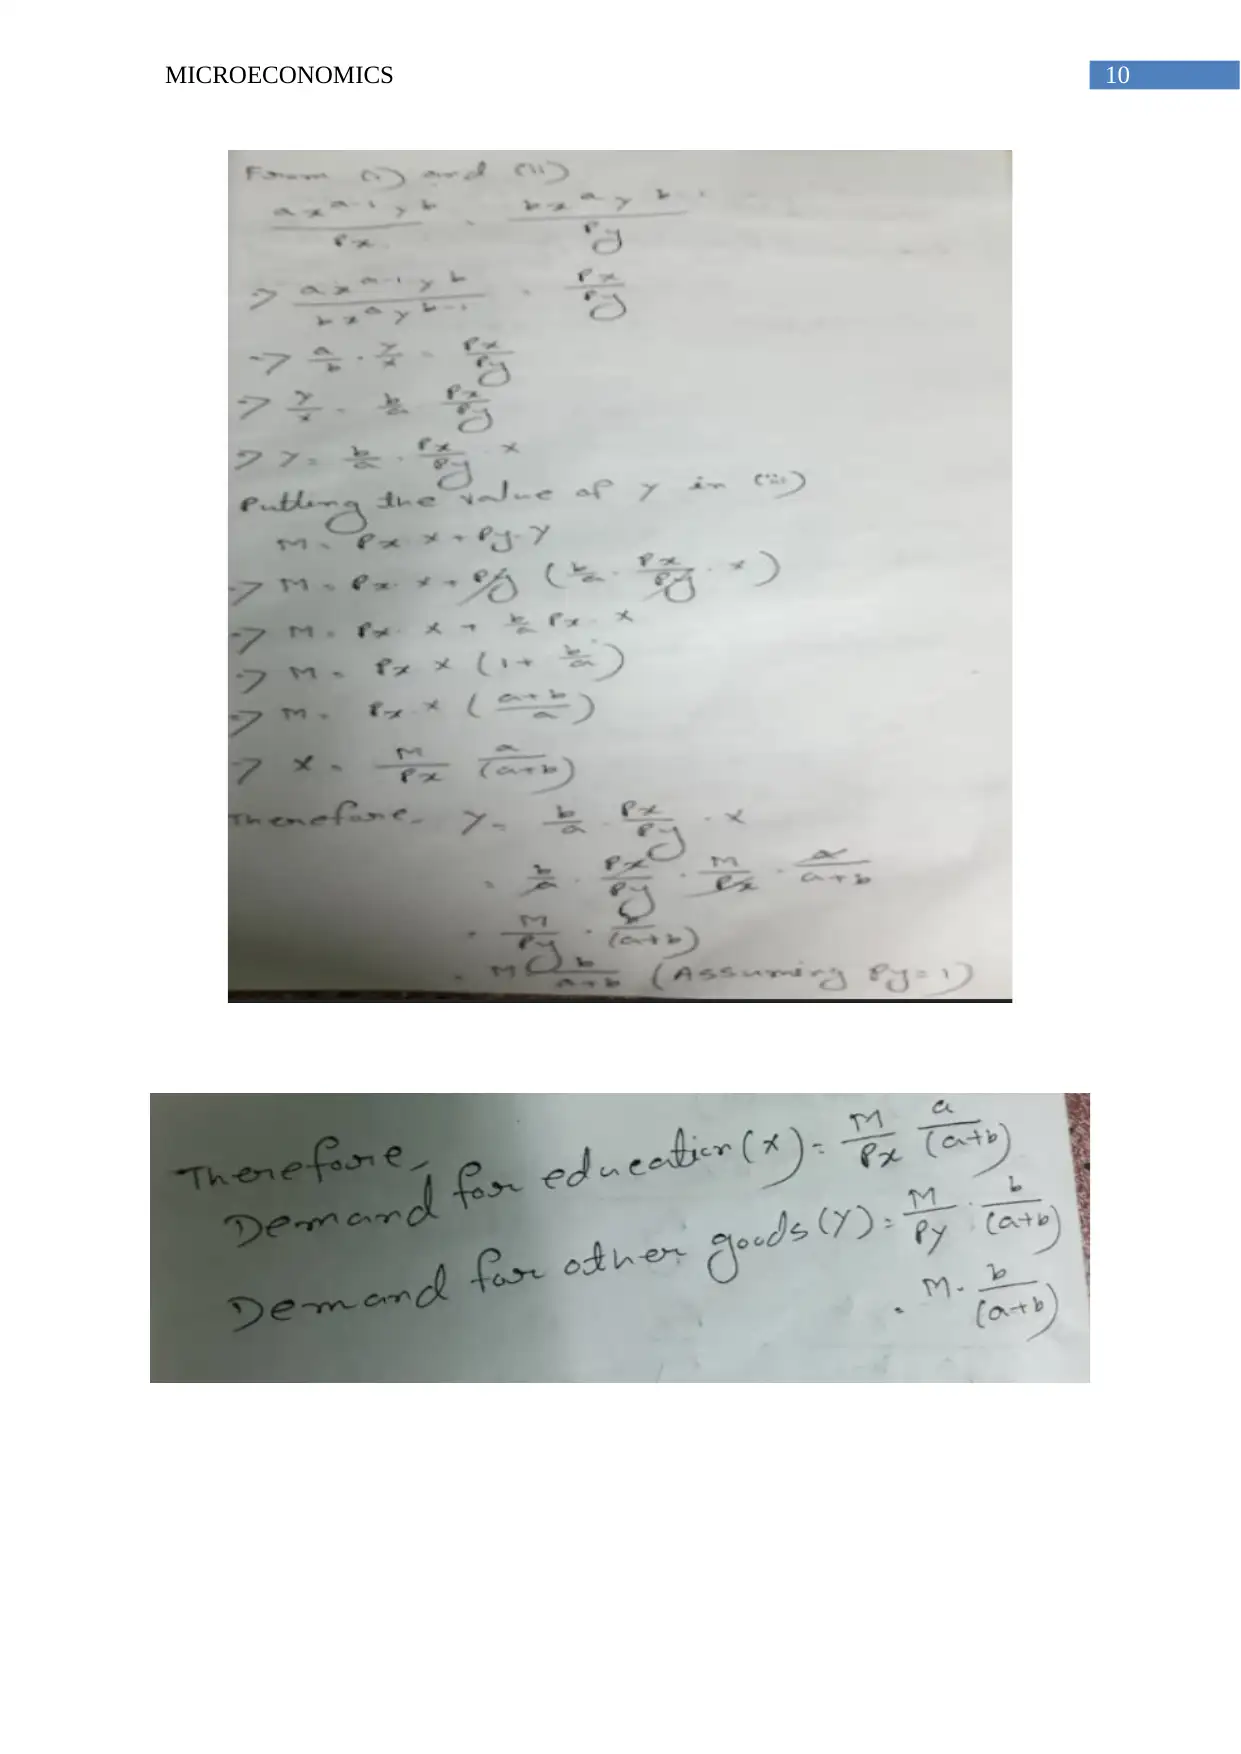 MICROECONOMICS 10
From (i) and (ii)
ax^(a-1) y^b / Px = bx^a y^(b-1) / Py
=> ax^(a-1) y^b / bx^a y^(b-1) = Px/Py
=> a/b . y/x = Px/Py
=> y/x = b/a Px/Py
=> y = b/a . Px/Py . x
Putting the value of y in (iii)
M = Px x + Py . y
=> M = Px . x + Py (b/a . Px/Py . x)
=> M = Px . x + b/a Px . x
=> M = Px x (1 + b/a)
=> M = Px . x (a+b / a)
=> x = M/Px a/(a+b)
Therefore, y = b/a . Px/Py . x
= b/a . Px/Py . M/Px . a/a+b
= M/Py . b/(a+b)
= M b/a+b (Assuming Py = 1)
Therefore,
Demand for education (x) = M/Px a/(a+b)
Demand for other goods (y) = M/Py . b/(a+b)
= M . b/(a+b)